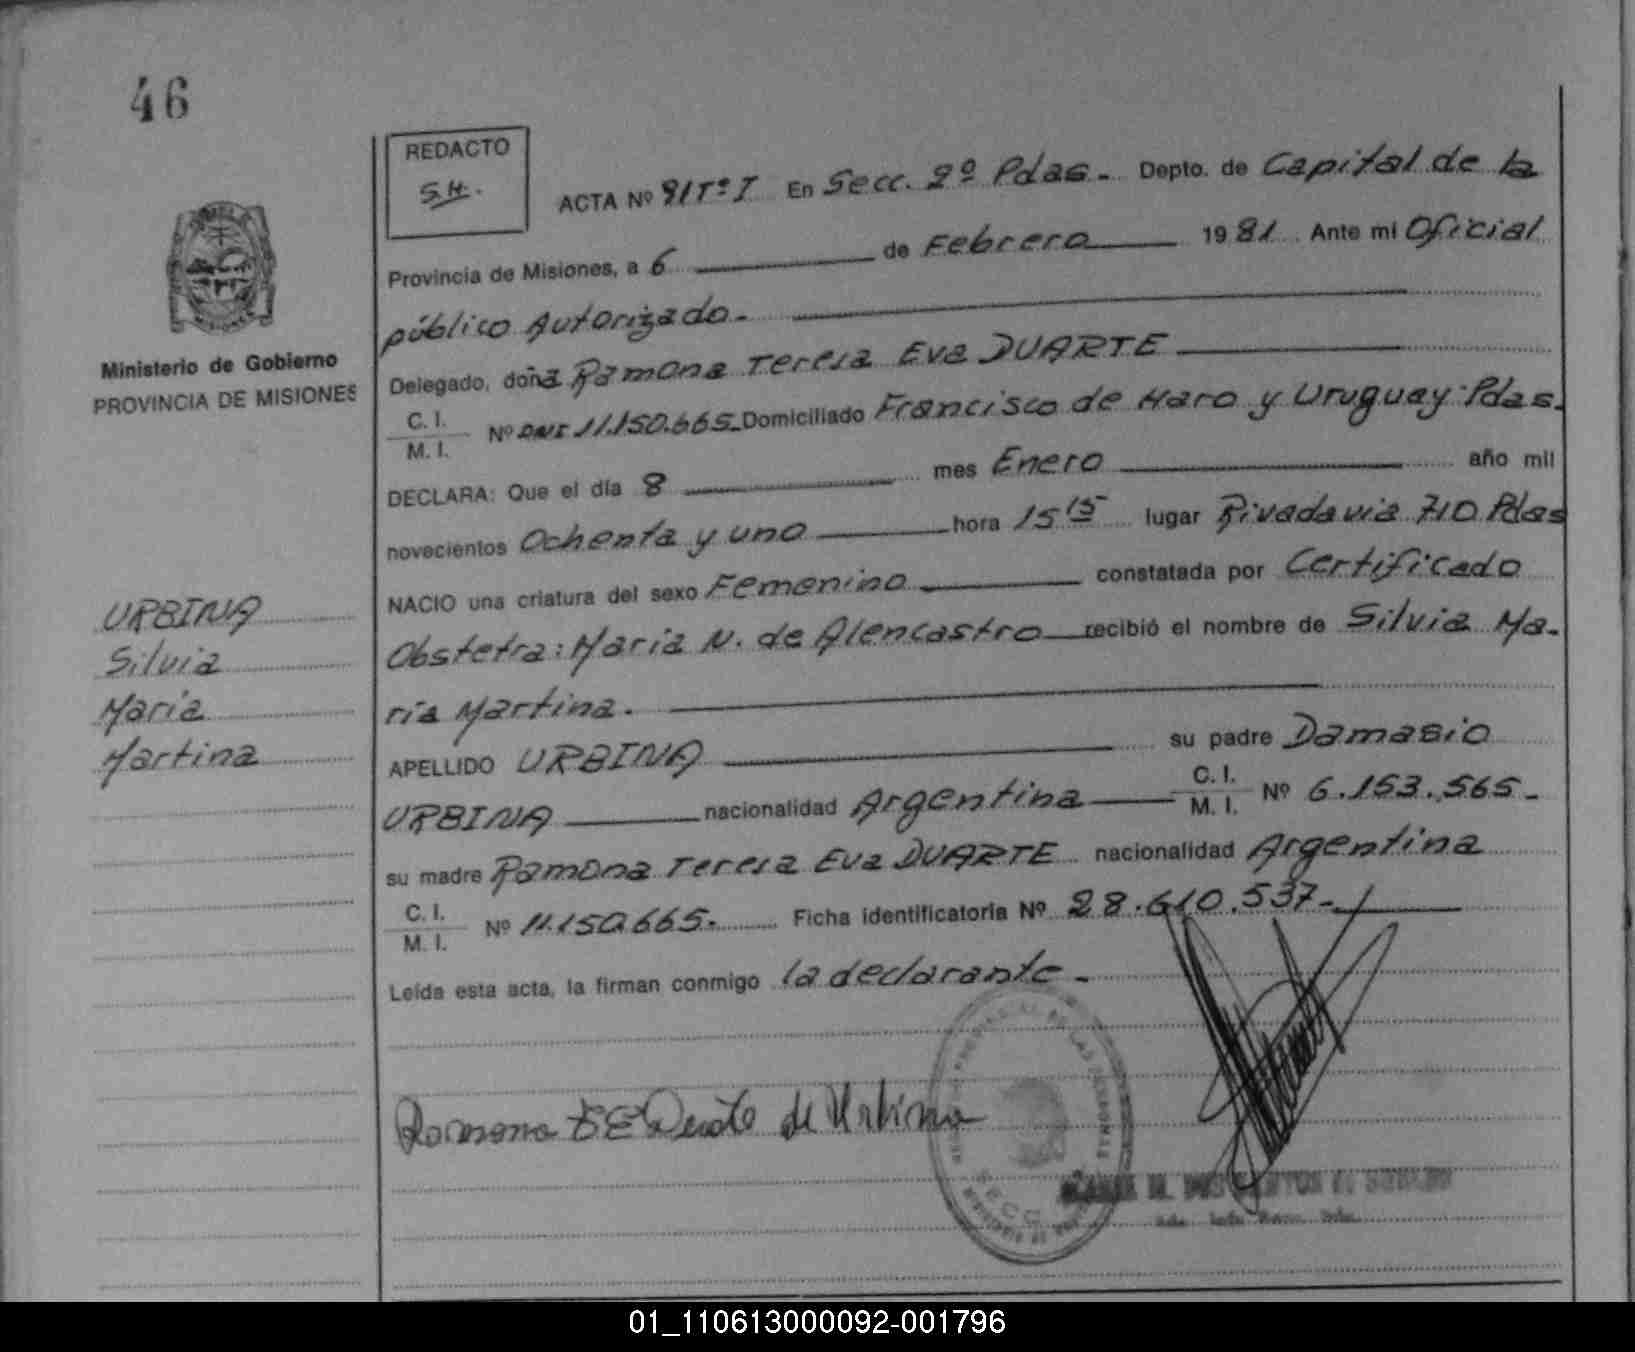 46
REDACTO
S.H.
ACTA Nº 91 Tº I En Secc. 2º Pdas. Depto. de Capital de la
Provincia de Misiones, a 6 de Febrero 1981 Ante mi Oficial
público Autorizado.
Delegado, doña Ramona Teresa Eva DUARTE
C. I.
M. I. Nº DNI 11.150.665. Domiciliado Francisco de Haro y Uruguay. Pdas.
DECLARA: Que el día 8 mes Enero año mil
novecientos Ochenta y uno hora 15 15 lugar Rivadavia 710 Pdas
NACIO una criatura del sexo Femenino constatada por Certificado
Obstetra: Maria N. de Alencastro recibió el nombre de Silvia Ma-
ría Martina.
APELLIDO URBINA su padre Damasio
URBINA nacionalidad Argentina C. I. M. I. Nº 6.153.565.
su madre Ramona Teresa Eva DUARTE nacionalidad Argentina
C. I.
M. I. Nº 11.150.665. Ficha identificatoria Nº 28.610.537.
Leída esta acta, la firman conmigo la declarante.
Ramona T E Duarte de Urbina
Ministerio de Gobierno
PROVINCIA DE MISIONES
URBINA
Silvia
María
Martina
SECC.
01_110613000092-001796